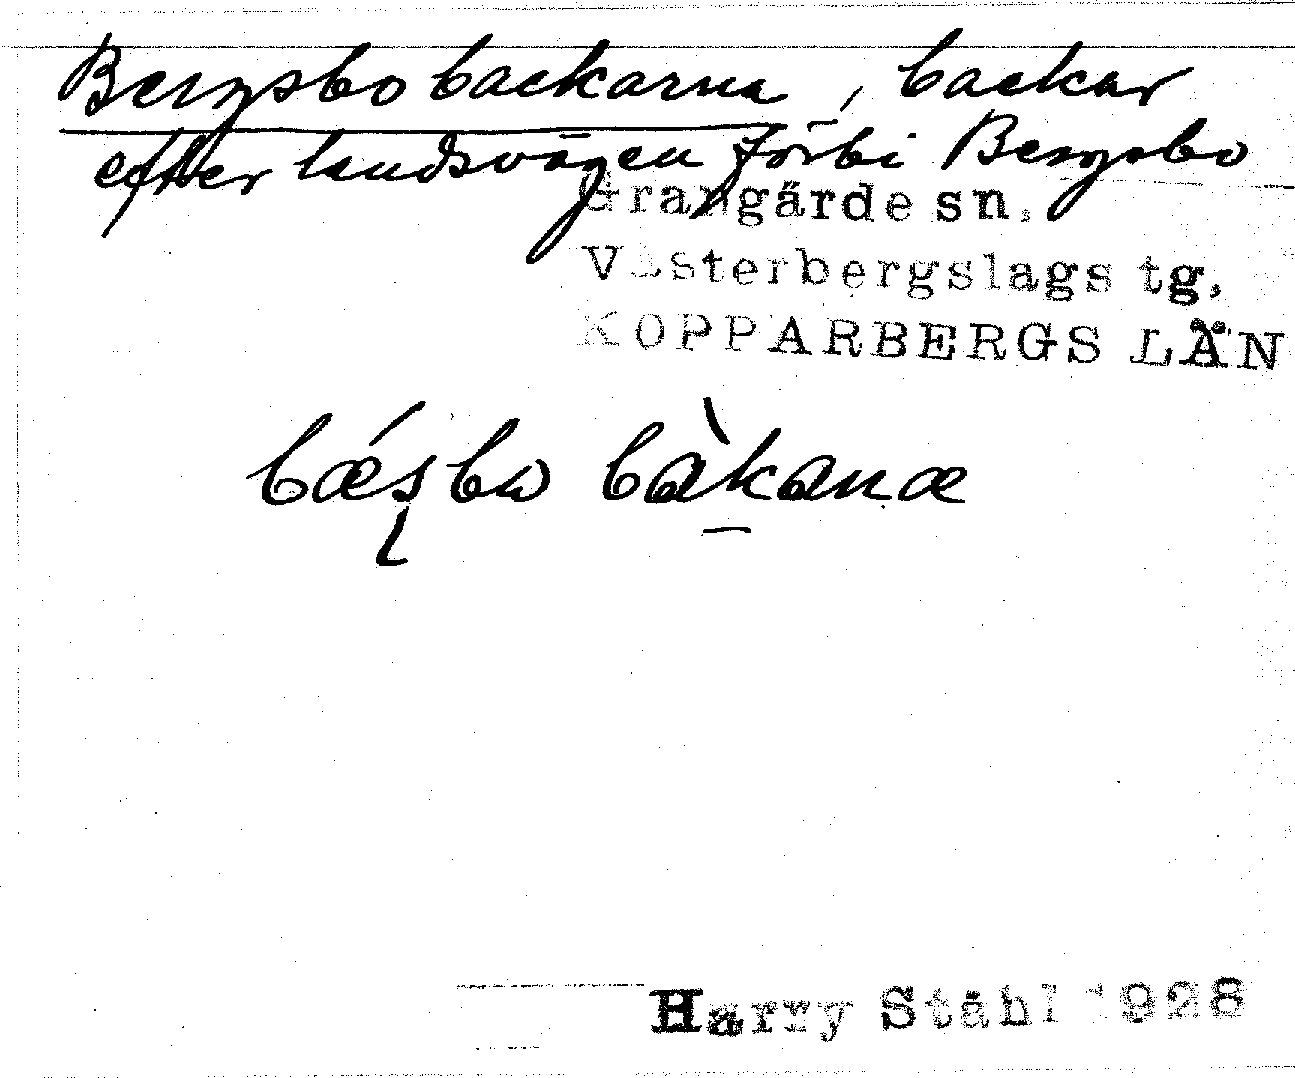 Bergsbobackarna, backar
efter landsvägen förbi Bergsbo
Grangärde sn.
Västerbergslags tg,
KOPPARBERGS LÄN
bǽʂbω bàkanæ
Harry Ståhl 1928